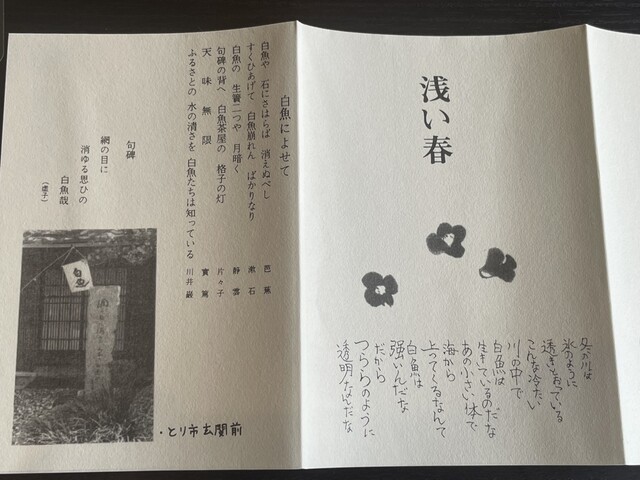 浅い春
冬の川は
氷のように
透きとおっている
こんな冷たい
川の中で
白魚は
生きているのだな
あの小さい体で
海から
上ってくるなんて
白魚は
強いんだな
だから
つららのように
透明なんだな
白魚によせて
白魚や 石にさはらば 消えぬべし 芭蕉
すくひあげて 白魚崩れん ばかりなり 漱石
白魚の 生簀二つや 月暗く 静雲
句碑の背へ 白魚茶屋の 格子の灯 片々子
天味無限 實篤
ふるさとの 水の清さを 白魚たちは知っている 川井巌
句碑
網の目に
消ゆる思ひの
白魚哉
(虚子)
白魚
・とり市玄関前